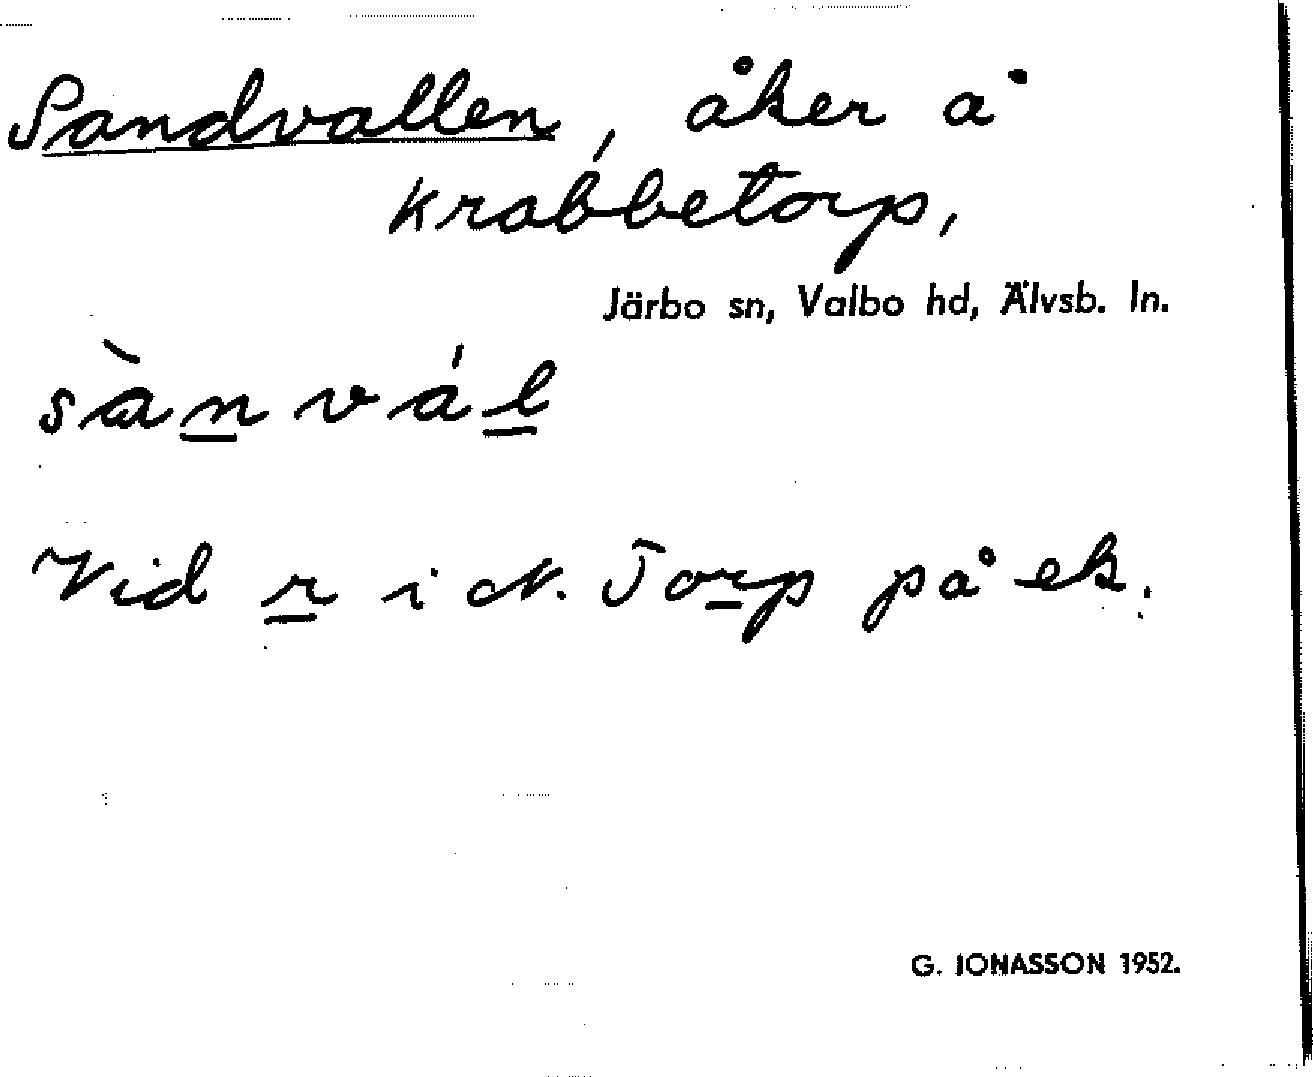 Sandvallen, åker å
Krabbetorp,
Järbo sn, Valbo hd, Älvsb. ln.
sàn̲vál̲
Vid r̲ i N. Tor̲p på ek.
G. IONASSON 1952.